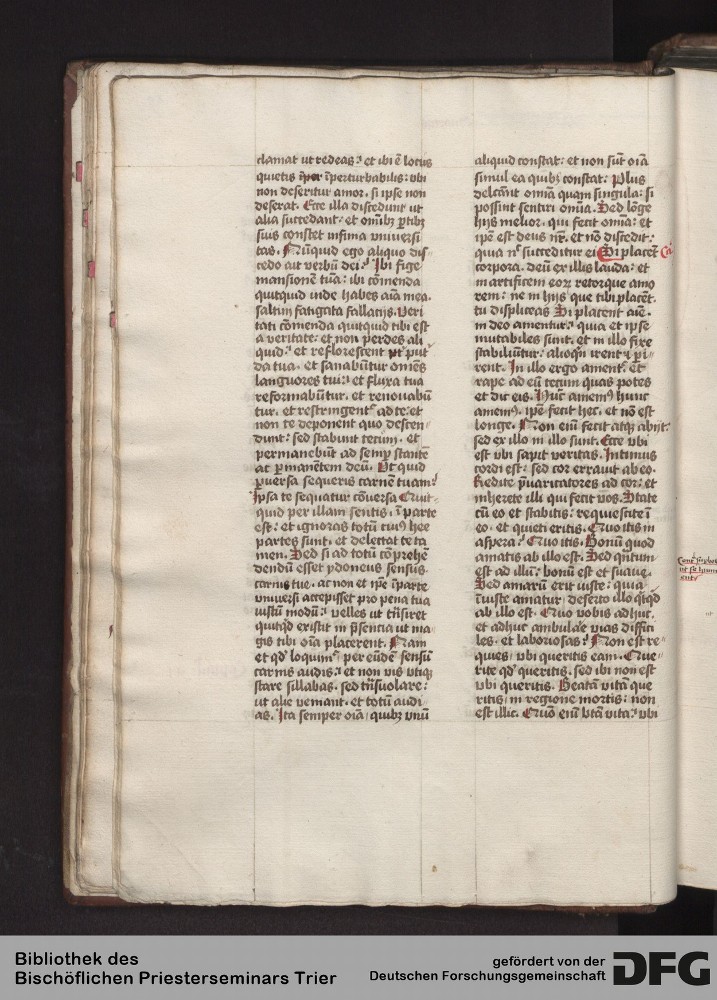 clamat ut redeas: et ibi ē locus
quietis īperturbabilis: ubi
non deseritur amor. si ipse non
deserat. Ecce illa discedunt ut
alia succedant: et omībꝫ ꝑtibꝫ
suis constet infima vniuersi
tas. Nūquid ego aliquo dis
cedo ait verbū dei: Ibi fige
mansionē tuā: ibi cōmenda
quitquid inde habes aīa mea.
saltim fatigata fallacijs. veri
tati cōmenda quitquid tibi est
a veritate: et non perdes ali
quid: et reflorescent put
da tua. et sanabūtur omēs
languores tui: et fluxa tua
reformabūtur. et renouabū
tur. et restringent᷑ ad te: et
non te deponent quo descen
dunt: sed stabunt tecum. et
permanebūt ad semꝑ stantē
at ꝑmanētem deū. Vt quid
ꝑuersa sequeris carnē tuam:
Ipsa te sequatur cōuersa Quit
quid per illam sentis. ī parte
est: et ignoras totū cui9 hee
partes sunt. et delectat te ta
men. Sed si ad totū cōprehē
dendū esset ydoneus sensus
carnis tue. ac non et ip̄e īparte
vniuersi accepisset pro pena tua
iustū modū: velles ut trāsiret
quitqd existit in p̄sentia ut ma
gis tibi oīa placerent. Nam
et qd loquim᷑ per eūdē sensū
carnis audis: et non vis vtiqꝫ
stare sillabas. sed trāsuolare:
ut alie veniant. et totū audi
as. Ita semper oīa quibꝫ vnū
aliquid constat: et non sūt oīa
simul ea quibꝫ constat: Plus
delectāt omīa quam singula: si
possint sentiri omīa. Sed lōge
hijs melior. qui fecit omīa: et
ip̄e est deus nr̄. et nō discedit:
quia nō succeditur ei Si placēt
corpora. deū ex illis lauda: et
in artificem eoꝝ retorque amo
rem: ne in hijs que tibi placēt.
tu displiceas Si placent aīe.
in deo amentur: quia et ipse
mutabiles sunt. et in illo fixe
stabiliūtur: alioqn irent et pi
rent. In illo ergo ament᷑. Et
rape ad eū tecum quas potes
et dic eis. Hūc amem9 hunc
amem9. ip̄e fecit hec. et nō est
longe. Non eīm fecit atqꝫ abijt:
sed ex illo in illo sunt. Ecce vbi
est vbi sapit veritas. Intimus
cordi est: sed cor errauit ab eo.
Redite p̄uaricatores ad cor: et
inherete illi qui fecit vos. State
cū eo et stabitis: requiescite ī
eo. et quieti eritis. Quo itis in
aspera: Quo itis. Bonū quod
amatis ab illo est. Sed qntum
est ad illū: bonū est et suaue.
Sed amarū erit iuste: quia
īiuste amatur. deserto illo qiqd
ab illo est. Quo vobis adhuc.
et adhuc ambulare vias diffici
les. et laboriosas: Non est re
quies. vbi queritis eam. Que
rite qd queritis. sed ibi non est
vbi queritis. Beatā vitā que
ritis. in regione mortis: non
est illic. Quō eīm btā vita: vbi
Bibliothek des
Bischöflichen Priesterseminars Trier
gefördert von der
Deutschen Forschungsgemeinschaft
DFG